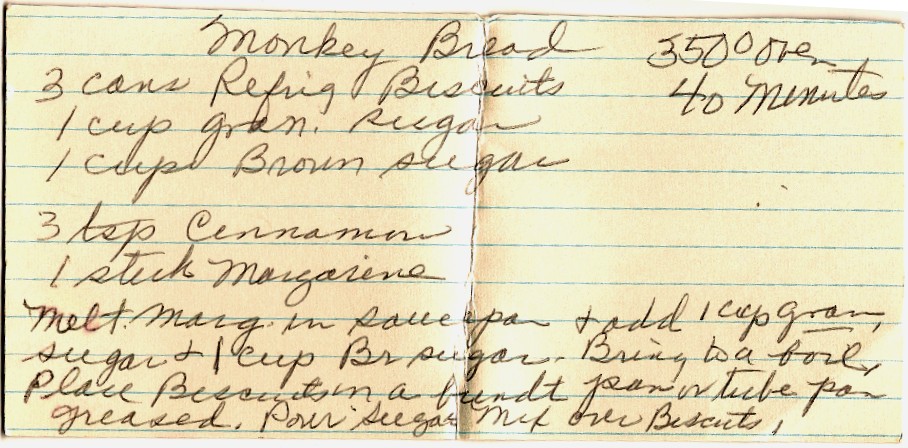 Monkey Bread
350° oven
3 cans Refrig Biscuits
40 Minutes
1 cup gran. sugar
1 cup Brown sugar
3 tsp Cennamon
1 stick Margarine
Melt Marg. in saucepan + add 1 cup gran,
sugar + 1 cup Br sugar. Bring to a boil,
Place Biscuits in a bundt pan or tube pan
greased. Pour Sugar Mix over Biscuits,